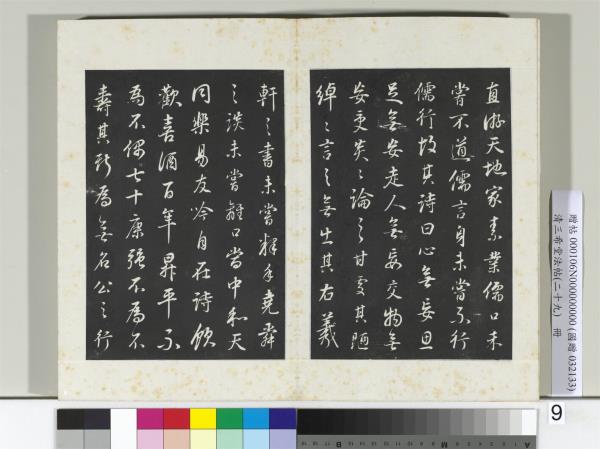 直游天地家素業儒口未
嘗不道儒言身未嘗不行
儒行故其詩曰心無妄思
足無妄走人無妄交物無
妄受炎々論之甘處其陋
綽々言之無出其右羲
軒之書未嘗釋手堯舜
之談未嘗離口當中和天
同樂易友吟自在詩飲
歡喜酒百年昇平不
為不偶七十康強不為不
壽其斯為無名公之行
贈帖 000106N000000000 (國贈 032133)
清三希堂法帖(二十九) 冊
9